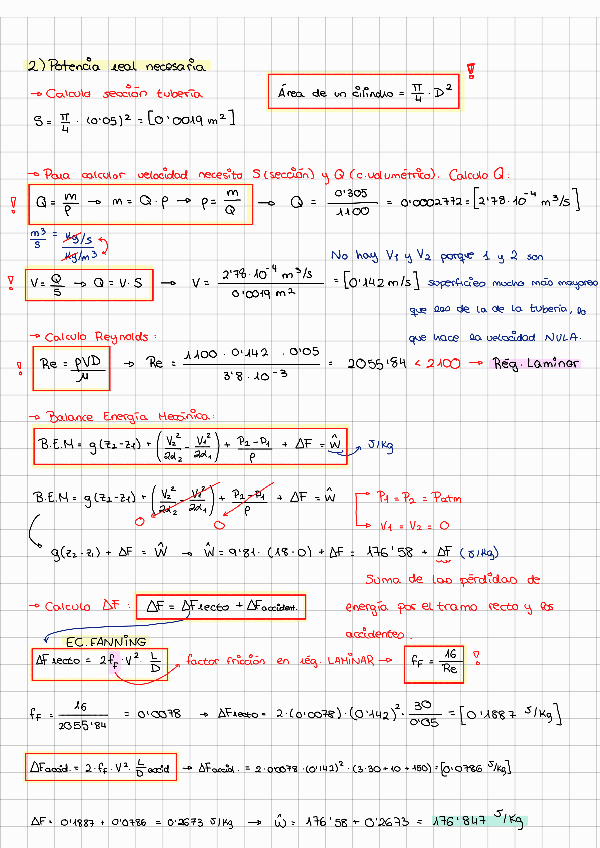 2) Potencia real necesaria
→ Calculo sección tubería
Área de un cilindro = π/4 · D²
!
S = π/4 · (0'05)² = [0'0019 m²]
→ Para calcular velocidad necesito S (sección) y Q (c.volumétrico). Calculo Q:
! Q = m/ρ → m = Q · ρ → ρ = m/Q → Q = 0'305/1100 = 0'0002772 = [2'78 · 10⁻⁴ m³/s]
m³/s = kg/s / kg/m³
No hay V1 y V2 porque 1 y 2 son
! V = Q/S → Q = V · S → V = 2'78 · 10⁻⁴ m³/s / 0'0019 m² = [0'142 m/s] superficies mucho más mayores
que las de la de la tubería, lo
que hace la velocidad NULA.
→ Calculo Reynolds:
! Re = ρVD/μ → Re = 1100 · 0'142 · 0'05 / 3'8 · 10⁻³ = 2055'84 < 2100 → Rég. Laminar
→ Balance Energía Mecánica:
B.E.M = g(z₂-z₁) + (V₂²/2α₂ - V₁²/2α₁) + P₂-P₁/ρ + ΔF = Ŵ J/kg
B.E.M = g(z₂-z₁) + (V₂²/2α₂ - V₁²/2α₁) + P₂-P₁/ρ + ΔF = Ŵ
0 0
P₁ = P₂ = Patm
V₁ = V₂ = 0
g(z₂-z₁) + ΔF = Ŵ → Ŵ = 9'81 · (18-0) + ΔF = 176'58 + ΔF (J/kg)
Suma de las pérdidas de
energía por el tramo recto y los
accidentes.
→ Calculo ΔF: ΔF = ΔFrecto + ΔFaccident.
EC. FANNING
ΔFrecto = 2f_F · V² · L/D factor fricción en rég. LAMINAR → f_F = 16/Re !
f_F = 16/2055'84 = 0'0078 → ΔFrecto = 2 · (0'0078) · (0'142)² · 30/0'05 = [0'1887 J/kg]
ΔFaccid = 2 · f_F · V² · L/D accid → ΔFaccid. = 2 · 0'0078 · (0'142)² · (3·30 + 10 + 150) = [0'0786 J/kg]
ΔF = 0'1887 + 0'0786 = 0'2673 J/kg → Ŵ = 176'58 + 0'2673 = 176'847 J/kg